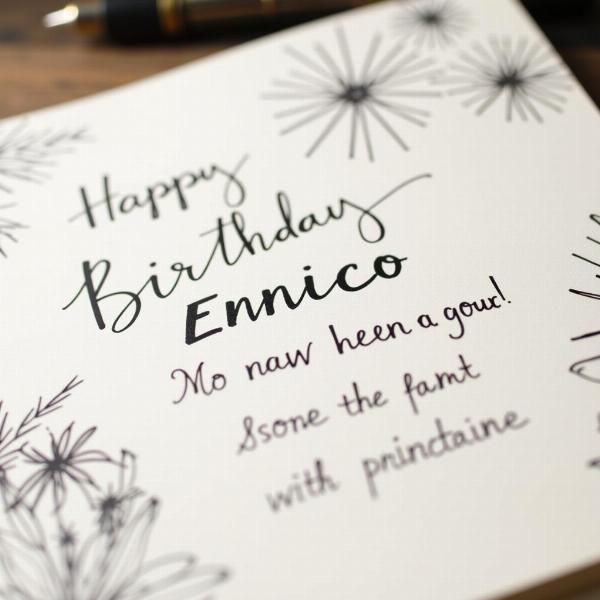 Happy
Birthday
Ennico
Mo naw heen a gour!
Ssone the famt
with princtaine